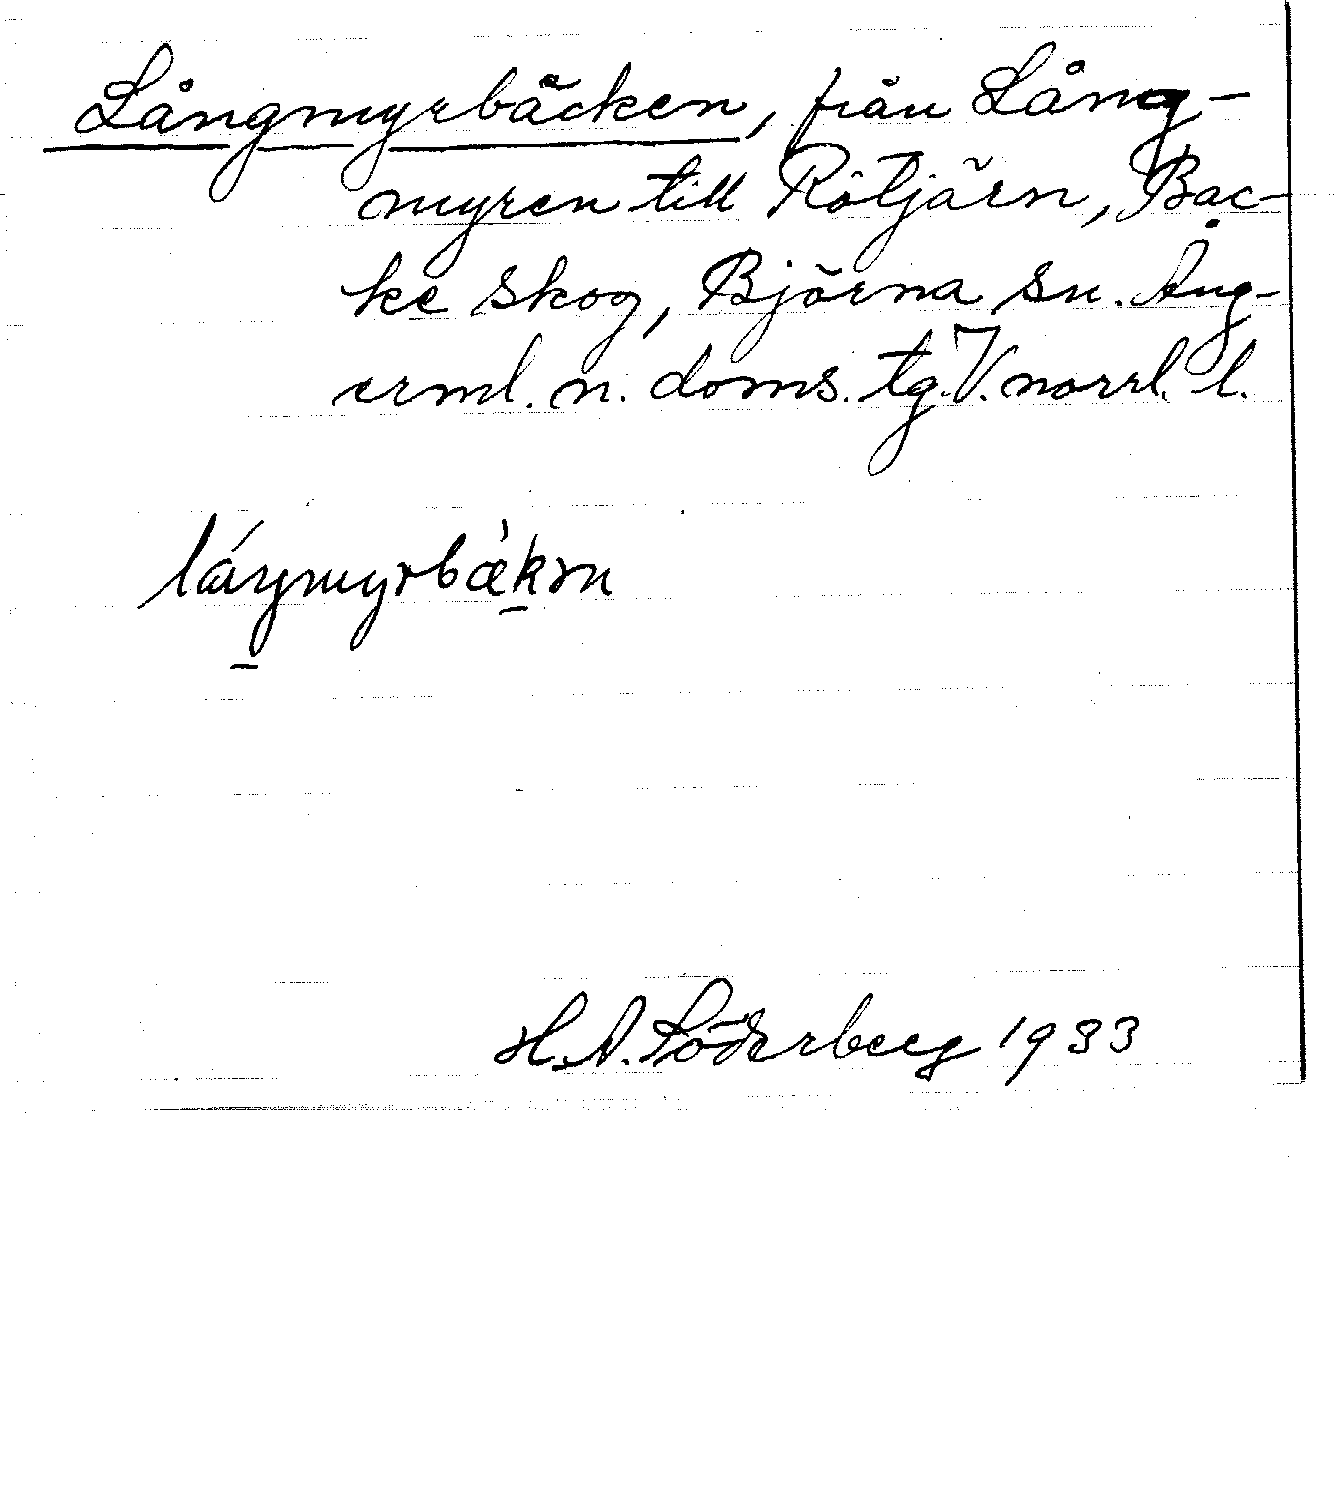 Långmyrbäcken, från Lång-
myren till Rötjärn, Bac-
ke skog, Björna sn. Ång-
erml. n. doms. tg. V. norrl. l.
H. A. Söderberg 1933